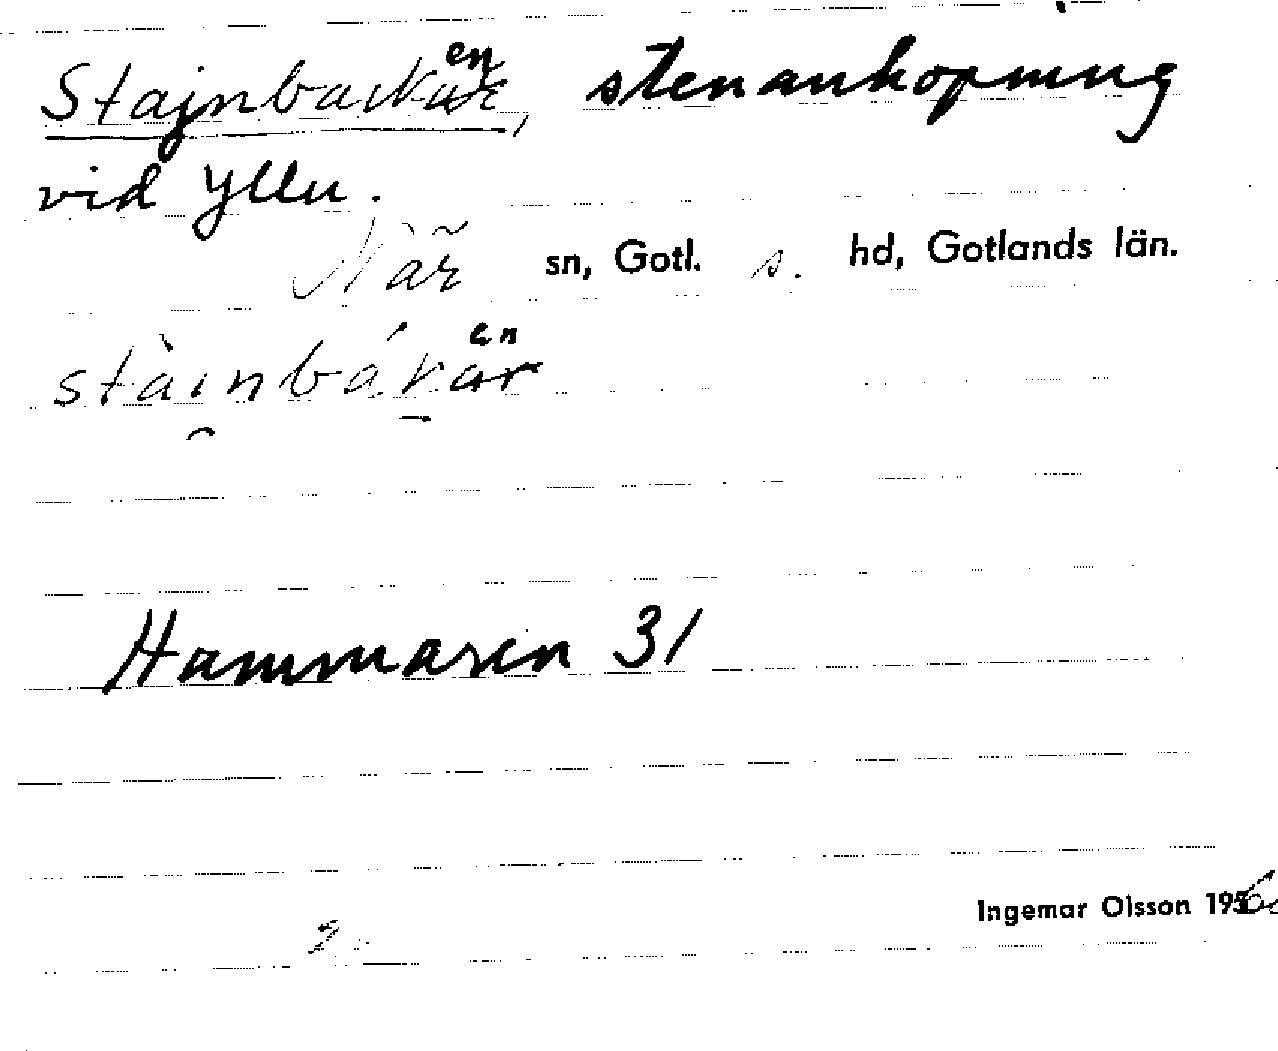 Stajnbackaren, stenanhopning
vid Yllu.
När sn, Gotl. s. hd, Gotlands län.
stàinbákaren
Hammaren 31
Ingemar Olsson 1956